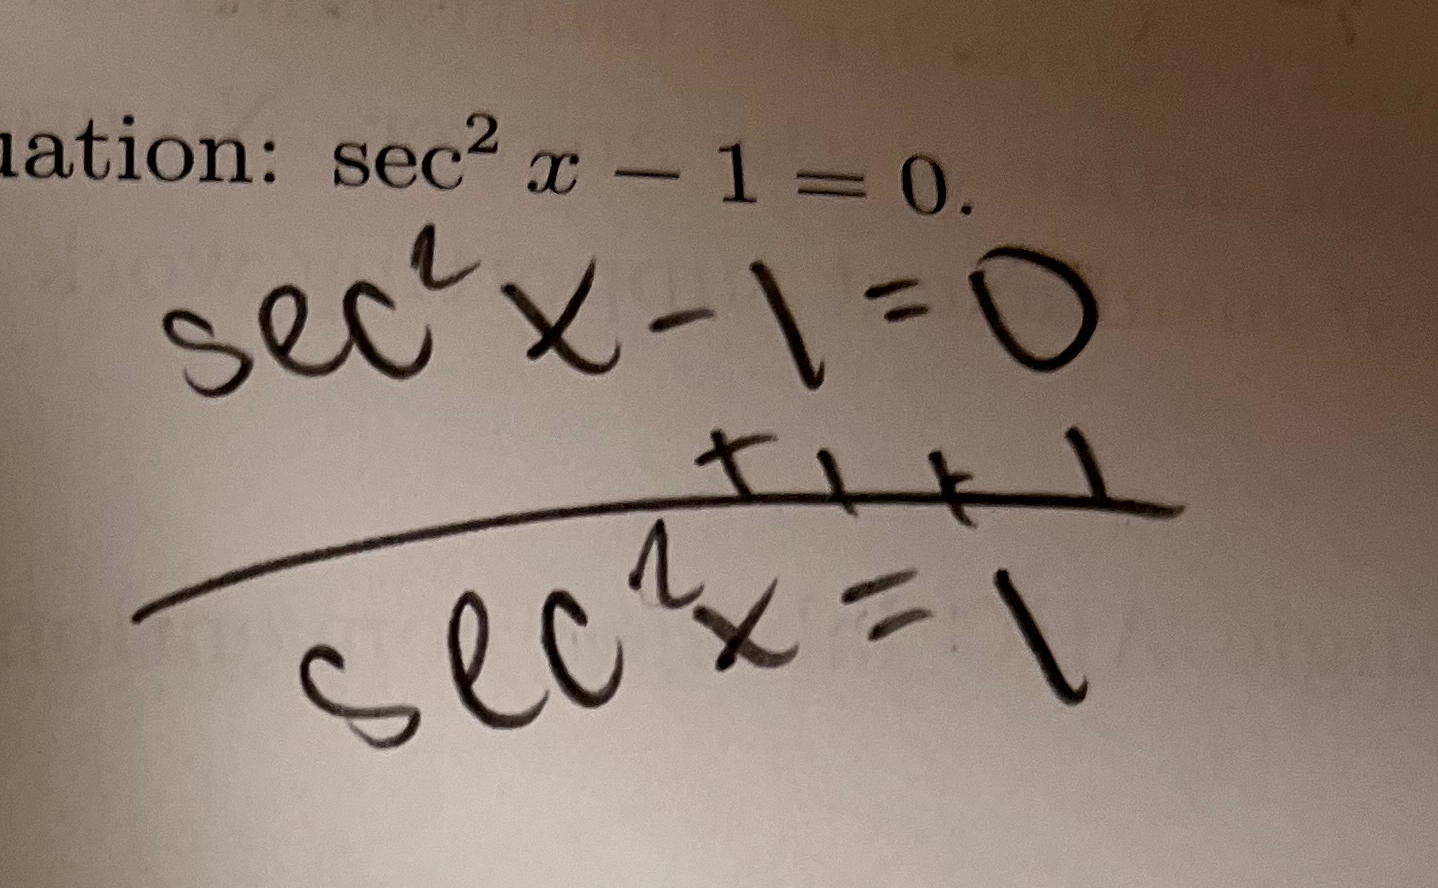 uation: sec² x − 1 = 0.
sec² x - 1 = 0
+ 1 + 1
sec² x = 1